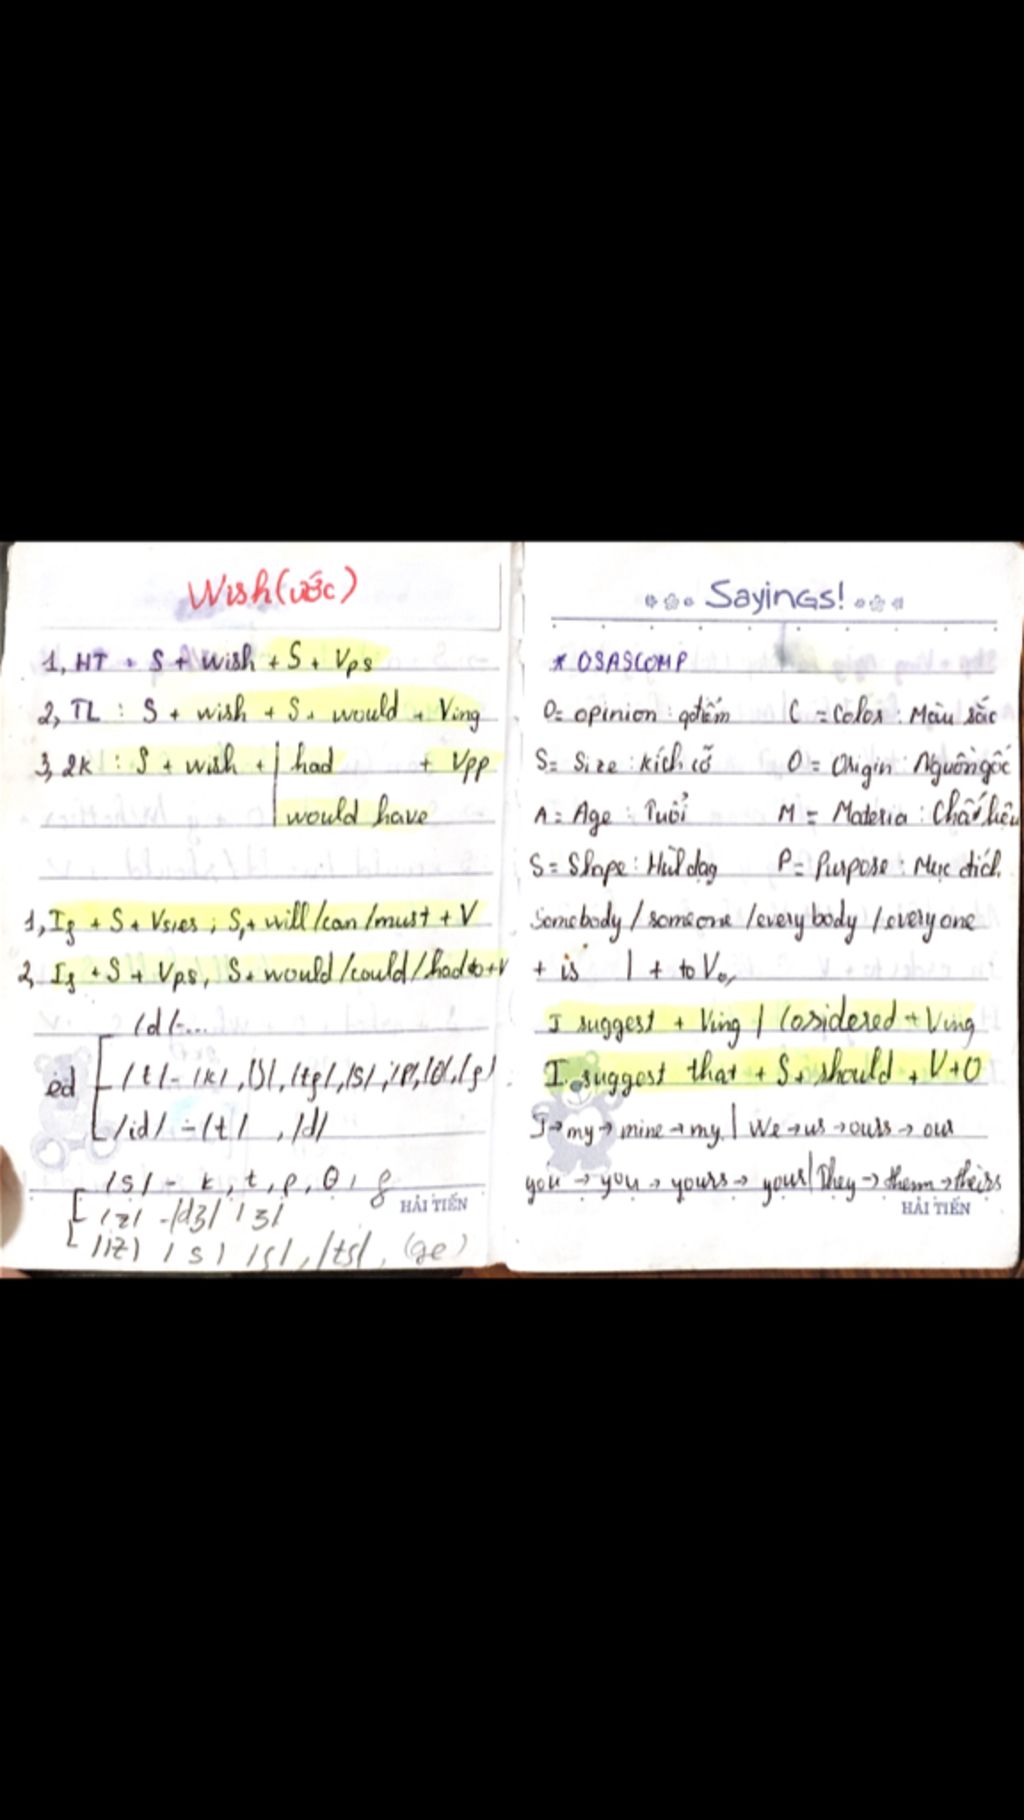 Wish (ước)
1, HT : S + wish + S + Vps
2, TL : S + wish + S + would + Ving
3, 2K : S + wish + | had + Vpp
would have
1, If + S + Vs/es ; S + will/can/must + V
2, If + S + Vps, S + would/could/had to + V
/d/-...
ed /t/- /k/, /ʃ/, /tʃ/, /s/, /p/, /f/
/id/ - /t/ , /d/
/s/ - k, t, p, θ, f
/z/ - /dʒ/ /ʒ/
/iz/ /s/ /ʃ/, /tʃ/, (ge)
HẢI TIẾN
Sayings!
* OSASCOMP
O = opinion : qđiểm C = Color : Màu sắc
S = Size : kích cỡ O = Origin : Nguồn gốc
A = Age : Tuổi M = Materia : Chất liệu
S = Shape : Hình dạg P = Purpose : Mục đích
Somebody / someone / everybody / everyone
+ is | + to Vo,
I suggest + Ving | Cosidered + Ving
I suggest that + S + should + V + O
I → my → mine → my | We → us → ours → our
you → you → yours → your | They → them → theirs
HẢI TIẾN